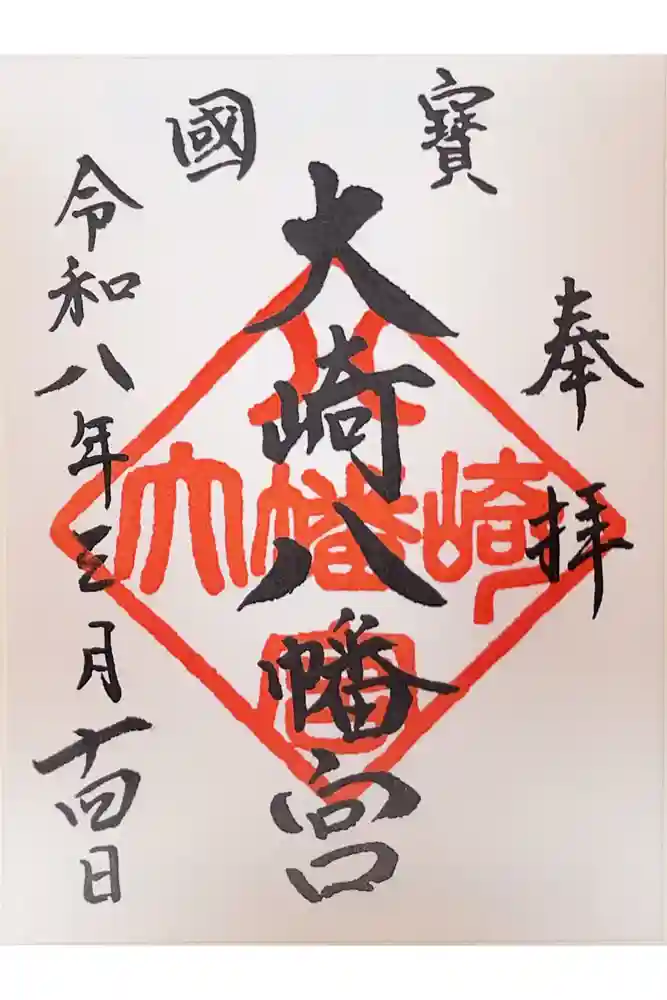 國寶
奉拝
大崎八幡宮
令和八年三月十四日